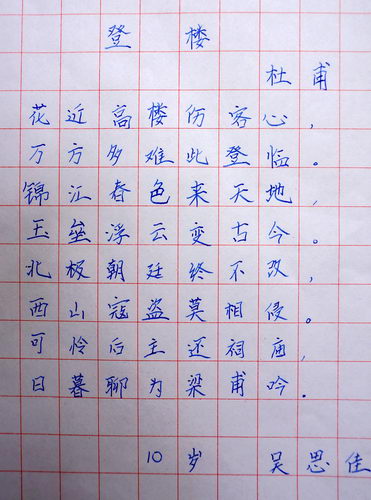 登楼
杜甫
花近高楼伤客心，
万方多难此登临。
锦江春色来天地，
玉垒浮云变古今。
北极朝廷终不改，
西山寇盗莫相侵。
可怜后主还祠庙，
日暮聊为梁甫吟。
10岁 吴思佳